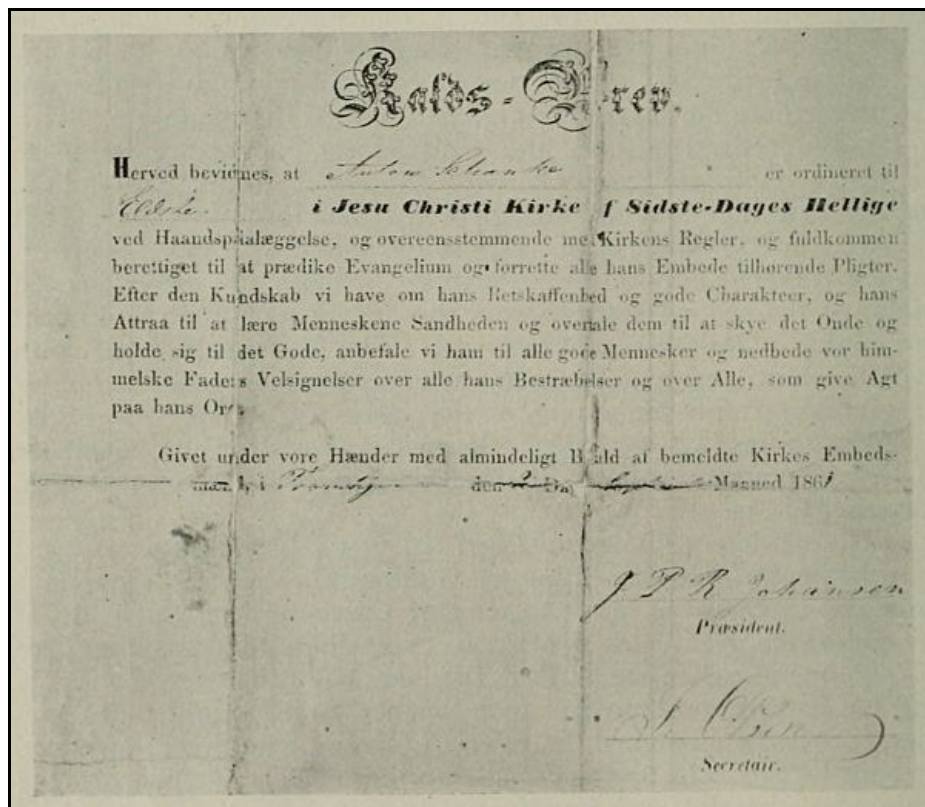 Kalds-Brev.
Herved bevidnes, at Anton Schanke er ordineret til
Eldste i Jesu Christi Kirke f Sidste-Dages Hellige
ved Haandspaalæggelse, og overeensstemmende med Kirkens Regler, og fuldkommen
berettiget til at prædike Evangelium og forrette alle hans Embede tilhørende Pligter.
Efter den Kundskab vi have om hans Retskaffenhed og gode Charakteer, og hans
Attraa til at lære Menneskene Sandheden og overtale dem til at skye det Onde og
holde sig til det Gode, anbefale vi ham til alle gode Mennesker og nedbede vor him-
melske Faders Velsignelser over alle hans Bestræbelser og over Alle, som give Agt
paa hans Ord.
Givet under vore Hænder med almindeligt Bifald af bemeldte Kirkes Embeds-
mænd, i den Maaned 1861
J P R Johansen
Præsident.
Olsen
Secretair.